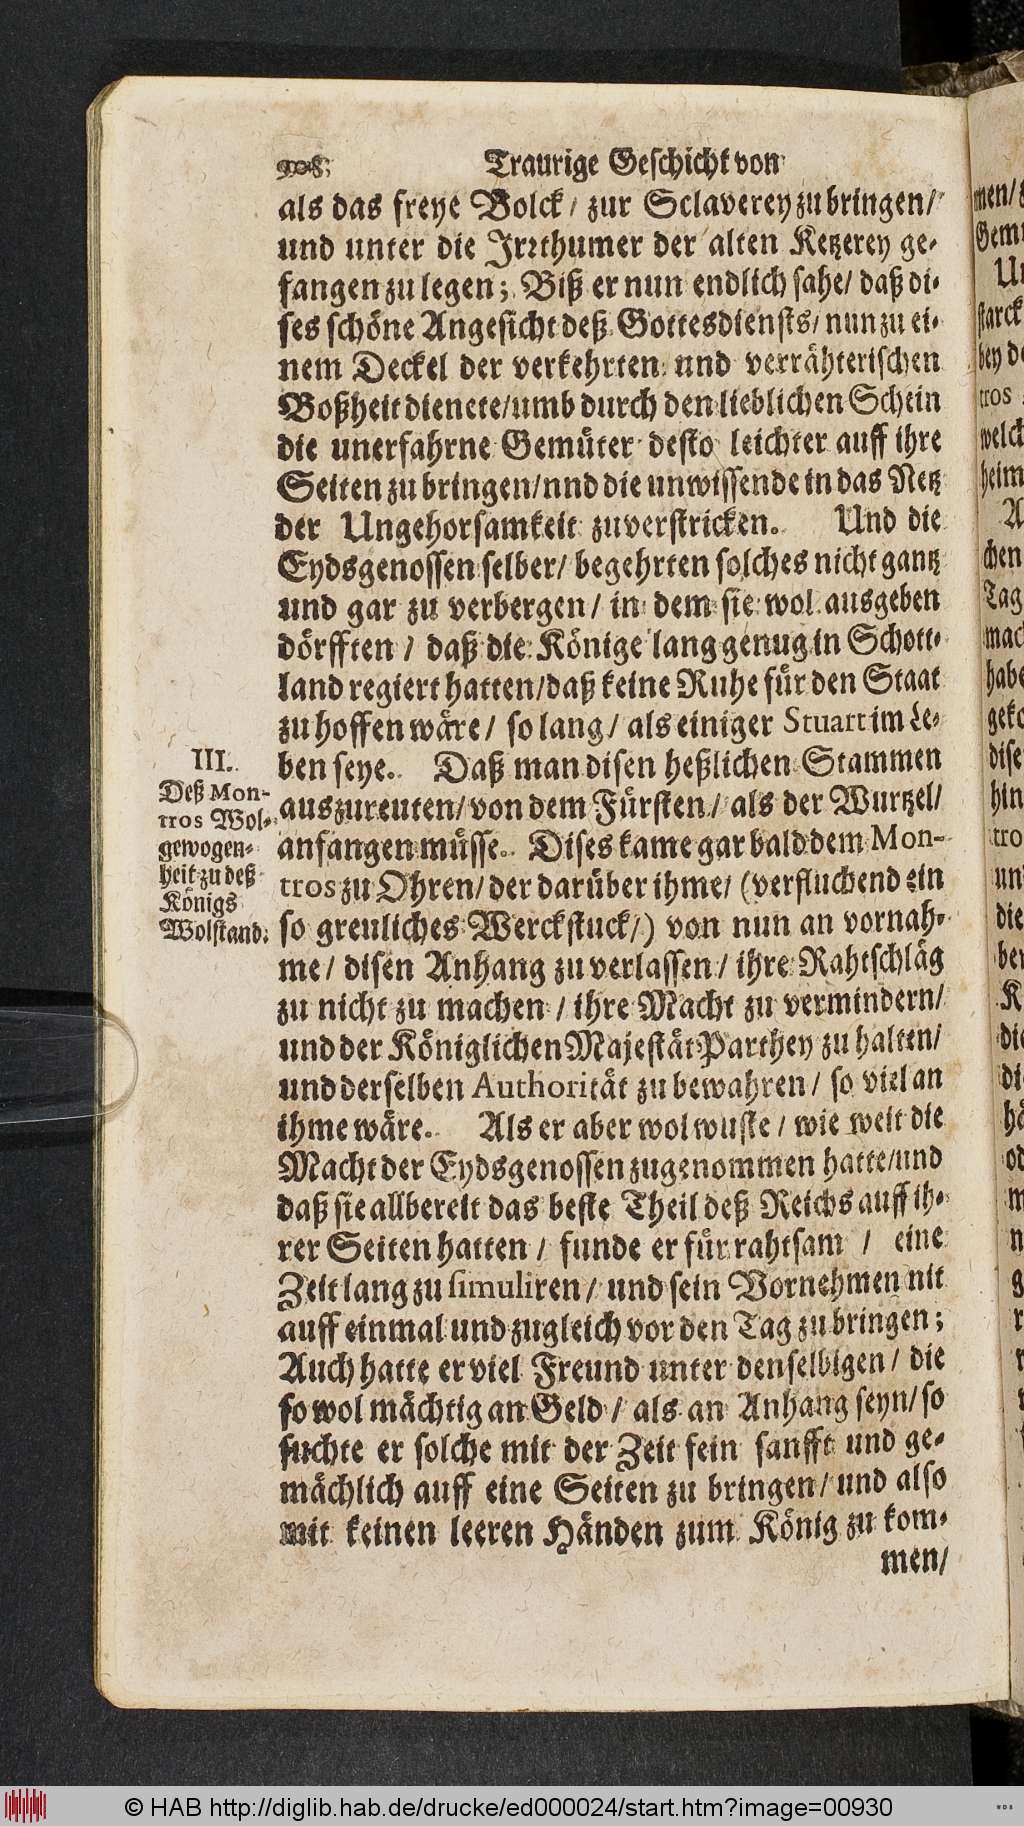 908. Traurige Geschicht von
als das freye Volck / zur Sclaverey zu bringen /
und unter die Irrthumer der alten Ketzerey ge-
fangen zu legen; Biß er nun endlich sahe / daß di-
ses schöne Angesicht deß Gottesdiensts / nun zu ei-
nem Deckel der verkehrten und verrähterischen
Boßheit dienete / umb durch den lieblichen Schein
die unerfahrne Gemüter desto leichter auff ihre
Seiten zu bringen / nnd die unwissende in das Netz
der Ungehorsamkeit zuverstricken. Und die
Eydsgenossen selber / begehrten solches nicht gantz
und gar zu verbergen / in dem sie wol ausgeben
dörfften / daß die Könige lang genug in Schott-
land regiert hatten / daß keine Ruhe für den Staat
zu hoffen wäre / so lang / als einiger Stuart im Le-
ben seye. Daß man disen heßlichen Stammen
auszureuten / von dem Fürsten / als der Wurtzel /
anfangen müsse. Dises kame gar bald dem Mon-
tros zu Ohren / der darüber ihme / (verfluchend ein
so greuliches Werckstuck /) von nun an vornah-
me / disen Anhang zu verlassen / ihre Rahtschläg
zu nicht zu machen / ihre Macht zu vermindern /
und der Königlichen Majestät Parthey zu halten /
und derselben Authorität zu bewahren / so viel an
ihme wäre. Als er aber wol wuste / wie weit die
Macht der Eydsgenossen zugenommen hatte / und
daß sie allbereit das beste Theil deß Reichs auff ih-
rer Seiten hatten / funde er für rahtsam / eine
Zeit lang zu simuliren / und sein Vornehmen nit
auff einmal und zugleich vor den Tag zu bringen;
Auch hatte er viel Freund unter denselbigen / die
so wol mächtig an Geld / als an Anhang seyn / so
suchte er solche mit der Zeit fein sanfft und ge-
mächlich auff eine Seiten zu bringen / und also
mit keinen leeren Händen zum König zu kom-
men /
III.
Deß Mon-
tros Wol-
gewogen-
heit zu deß
Königs
Wolstand.
© HAB http://diglib.hab.de/drucke/ed000024/start.htm?image=00930